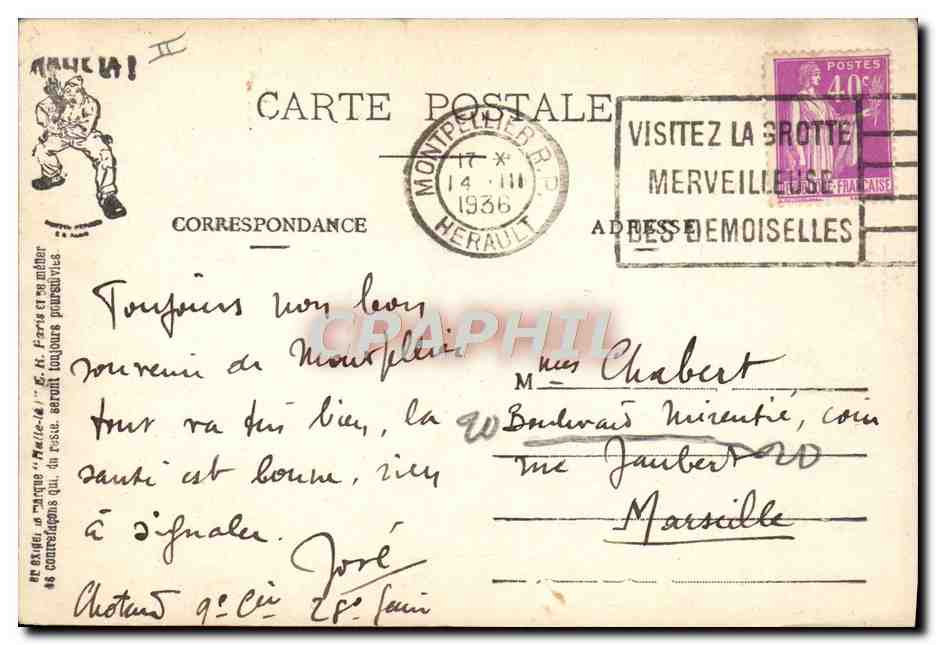 II
HALTE LA !
CARTE POSTALE
POSTES
40c
FRANÇAISE
MONTPELLIER R.P.
17 X
14 III
1936
HERAULT
VISITEZ LA GROTTE
MERVEILLEUSE
DES DEMOISELLES
CORRESPONDANCE
ADRESSE
la marque "Halte-là!" E. R. Paris et se méfier
contrefaçons qui, du reste, seront toujours poursuivies.
Toujours mon bon
souvenir de Montpellier
tout va très bien, la
santé est bonne, rien
à signaler.
José
9e Cie 28e
Mmes Chabert
20 Boulevard Mirentié, coin
rue Jaubert 20
Marseille
CPAPHIL